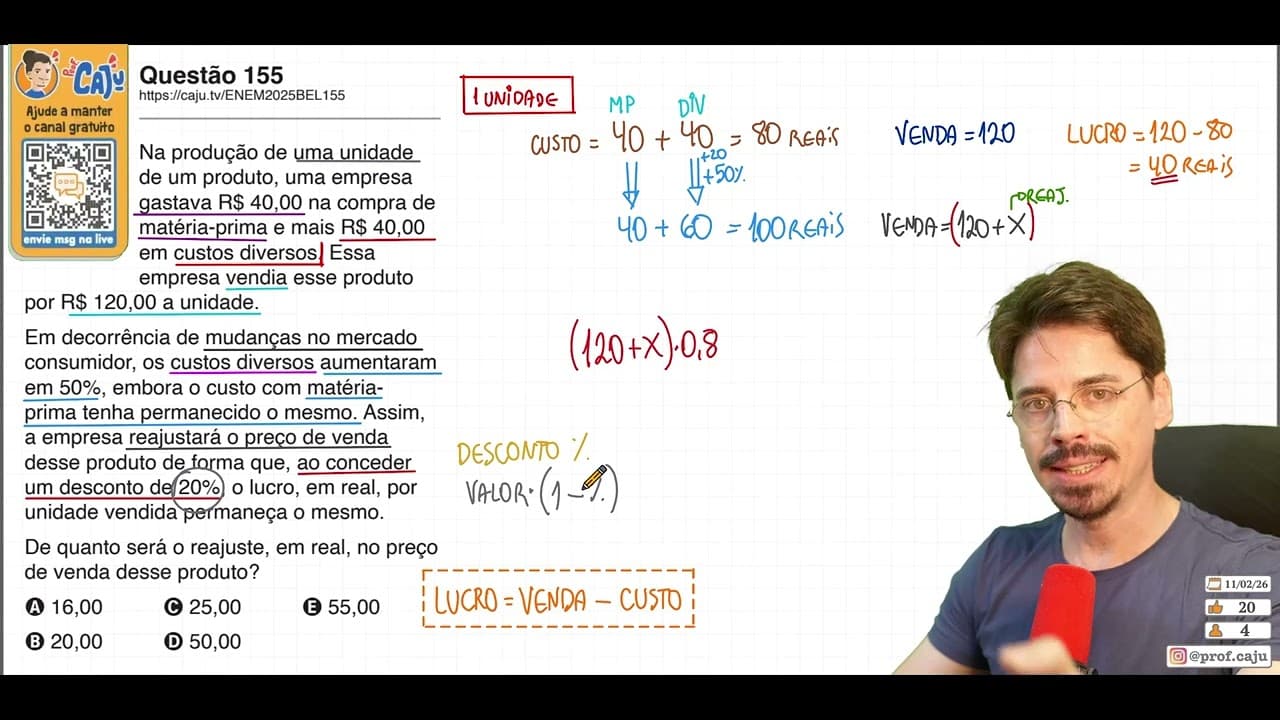 Prof. CAJU
Ajude a manter
o canal gratuito
envie msg na live
Questão 155
https://caju.tv/ENEM2025BEL155
Na produção de uma unidade
de um produto, uma empresa
gastava R$ 40,00 na compra de
matéria-prima e mais R$ 40,00
em custos diversos. Essa
empresa vendia esse produto
por R$ 120,00 a unidade.
Em decorrência de mudanças no mercado
consumidor, os custos diversos aumentaram
em 50%, embora o custo com matéria-
prima tenha permanecido o mesmo. Assim,
a empresa reajustará o preço de venda
desse produto de forma que, ao conceder
um desconto de 20% o lucro, em real, por
unidade vendida permaneça o mesmo.
De quanto será o reajuste, em real, no preço
de venda desse produto?
A 16,00
B 20,00
C 25,00
D 50,00
E 55,00
1 UNIDADE
MP DIV
CUSTO = 40 + 40 = 80 REAIS
+20
+50%
40 + 60 = 100 REAIS
VENDA = 120
LUCRO = 120 - 80
= 40 REAIS
REAJ.
VENDA = (120 + X)
(120 + X) · 0,8
DESCONTO %
VALOR · (1 - %)
LUCRO = VENDA - CUSTO
11/02/26
20
4
@prof.caju